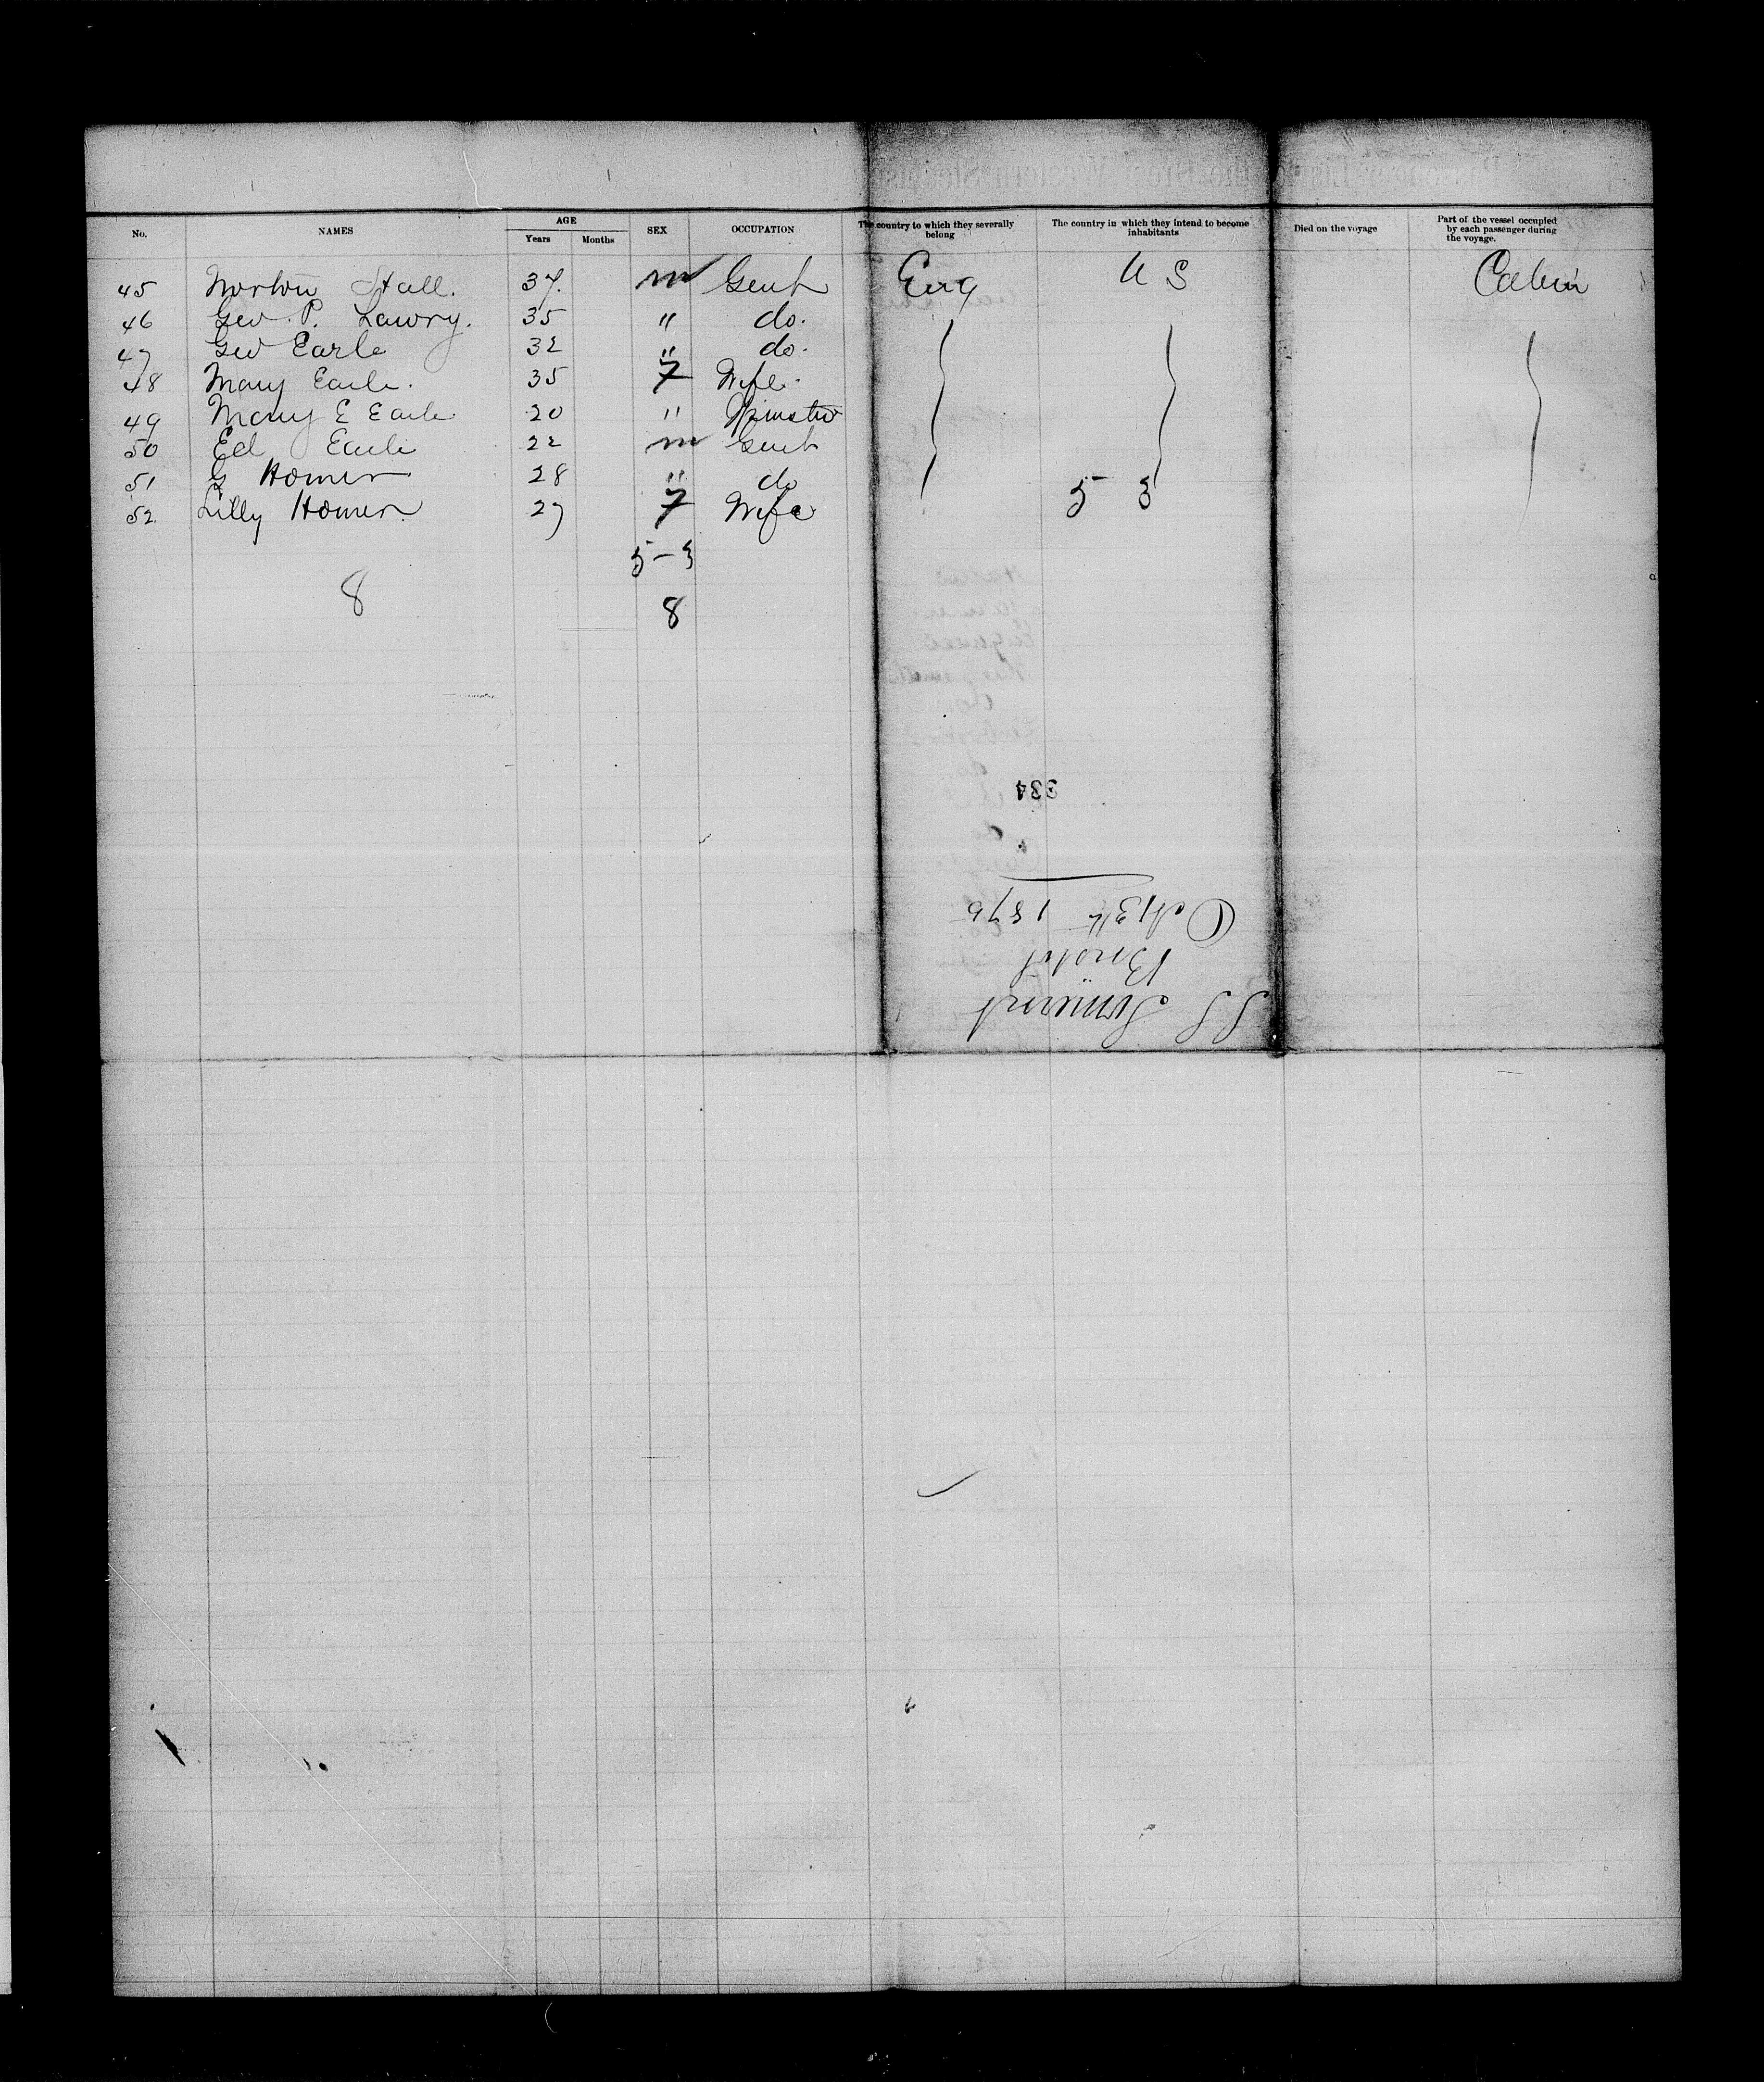 No. NAMES AGE Years Months SEX OCCUPATION The country to which they severally belong The country in which they intend to become inhabitants Died on the voyage Part of the vessel occupied by each passenger during the voyage.
45 Norton Hall. 37. m Gent Eng U S Cabin
46 Geo. P. Lawry. 35 " do.
47 Geo Earle 32 " do.
48 Mary Earle. 35 F Wife.
49 Mary E Earle 20 " Spinster
50 Ed Earle 22 m Gent
51 G Homer 28 " do
52. Lilly Homer. 27 F Wife 5 3
5-3
8 8
334
SS Somerset
Bristol
Oct 13th 1876